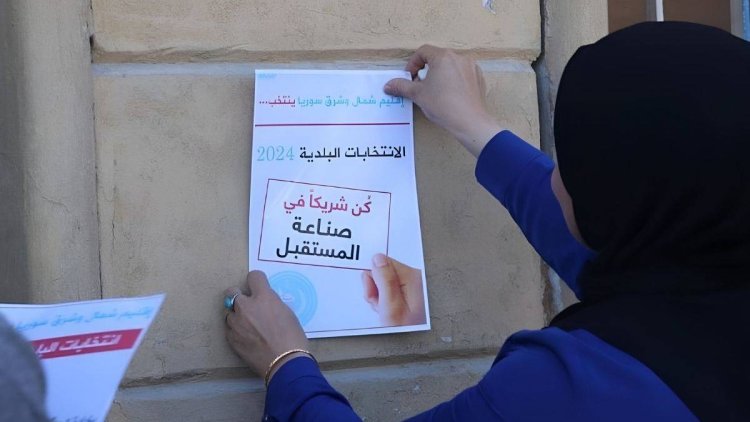 إقليم شمال وشرق سوريا ينتخب...
الانتخابات البلدية 2024
كُن شريكاً في
صناعة
المستقبل
إقليم شمال وشرق سوريا
انتخابات البلد